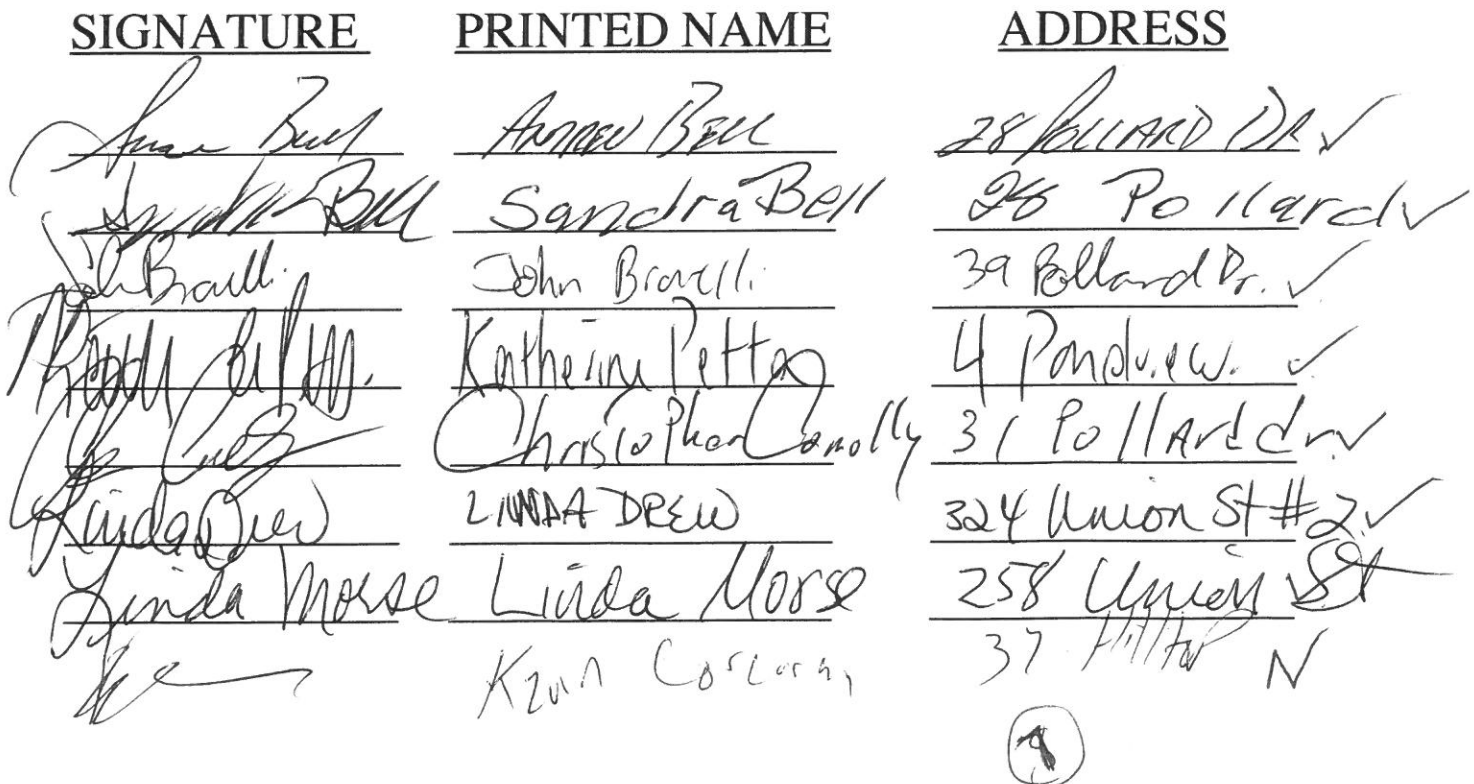 SIGNATURE PRINTED NAME ADDRESS
Bell ANDREW BELL 28 POLLARD DR ✓
Bell Sandra Bell 28 Pollard ✓
John Bravelli John Bravelli 39 Pollard Dr. ✓
Katherine Petto 4 Pondview. ✓
Christopher Connolly 31 Pollard dr ✓
Linda Drew LINDA DREW 324 Union St #2 ✓
Linda Morse Linda Morse 258 Union St
Corcoran 37 Hilltop N